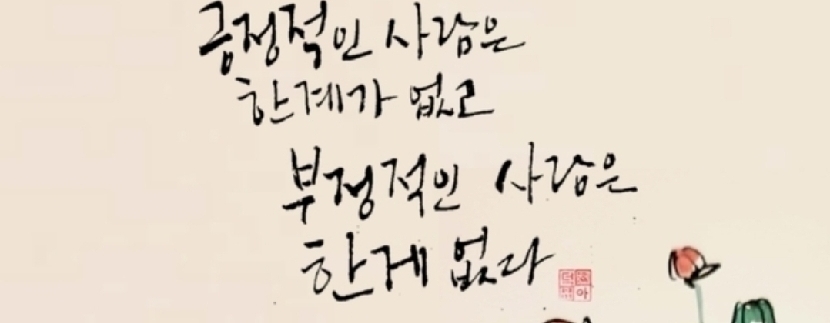 긍정적인 사람은
한계가 없고
부정적인 사람은
한게 없다